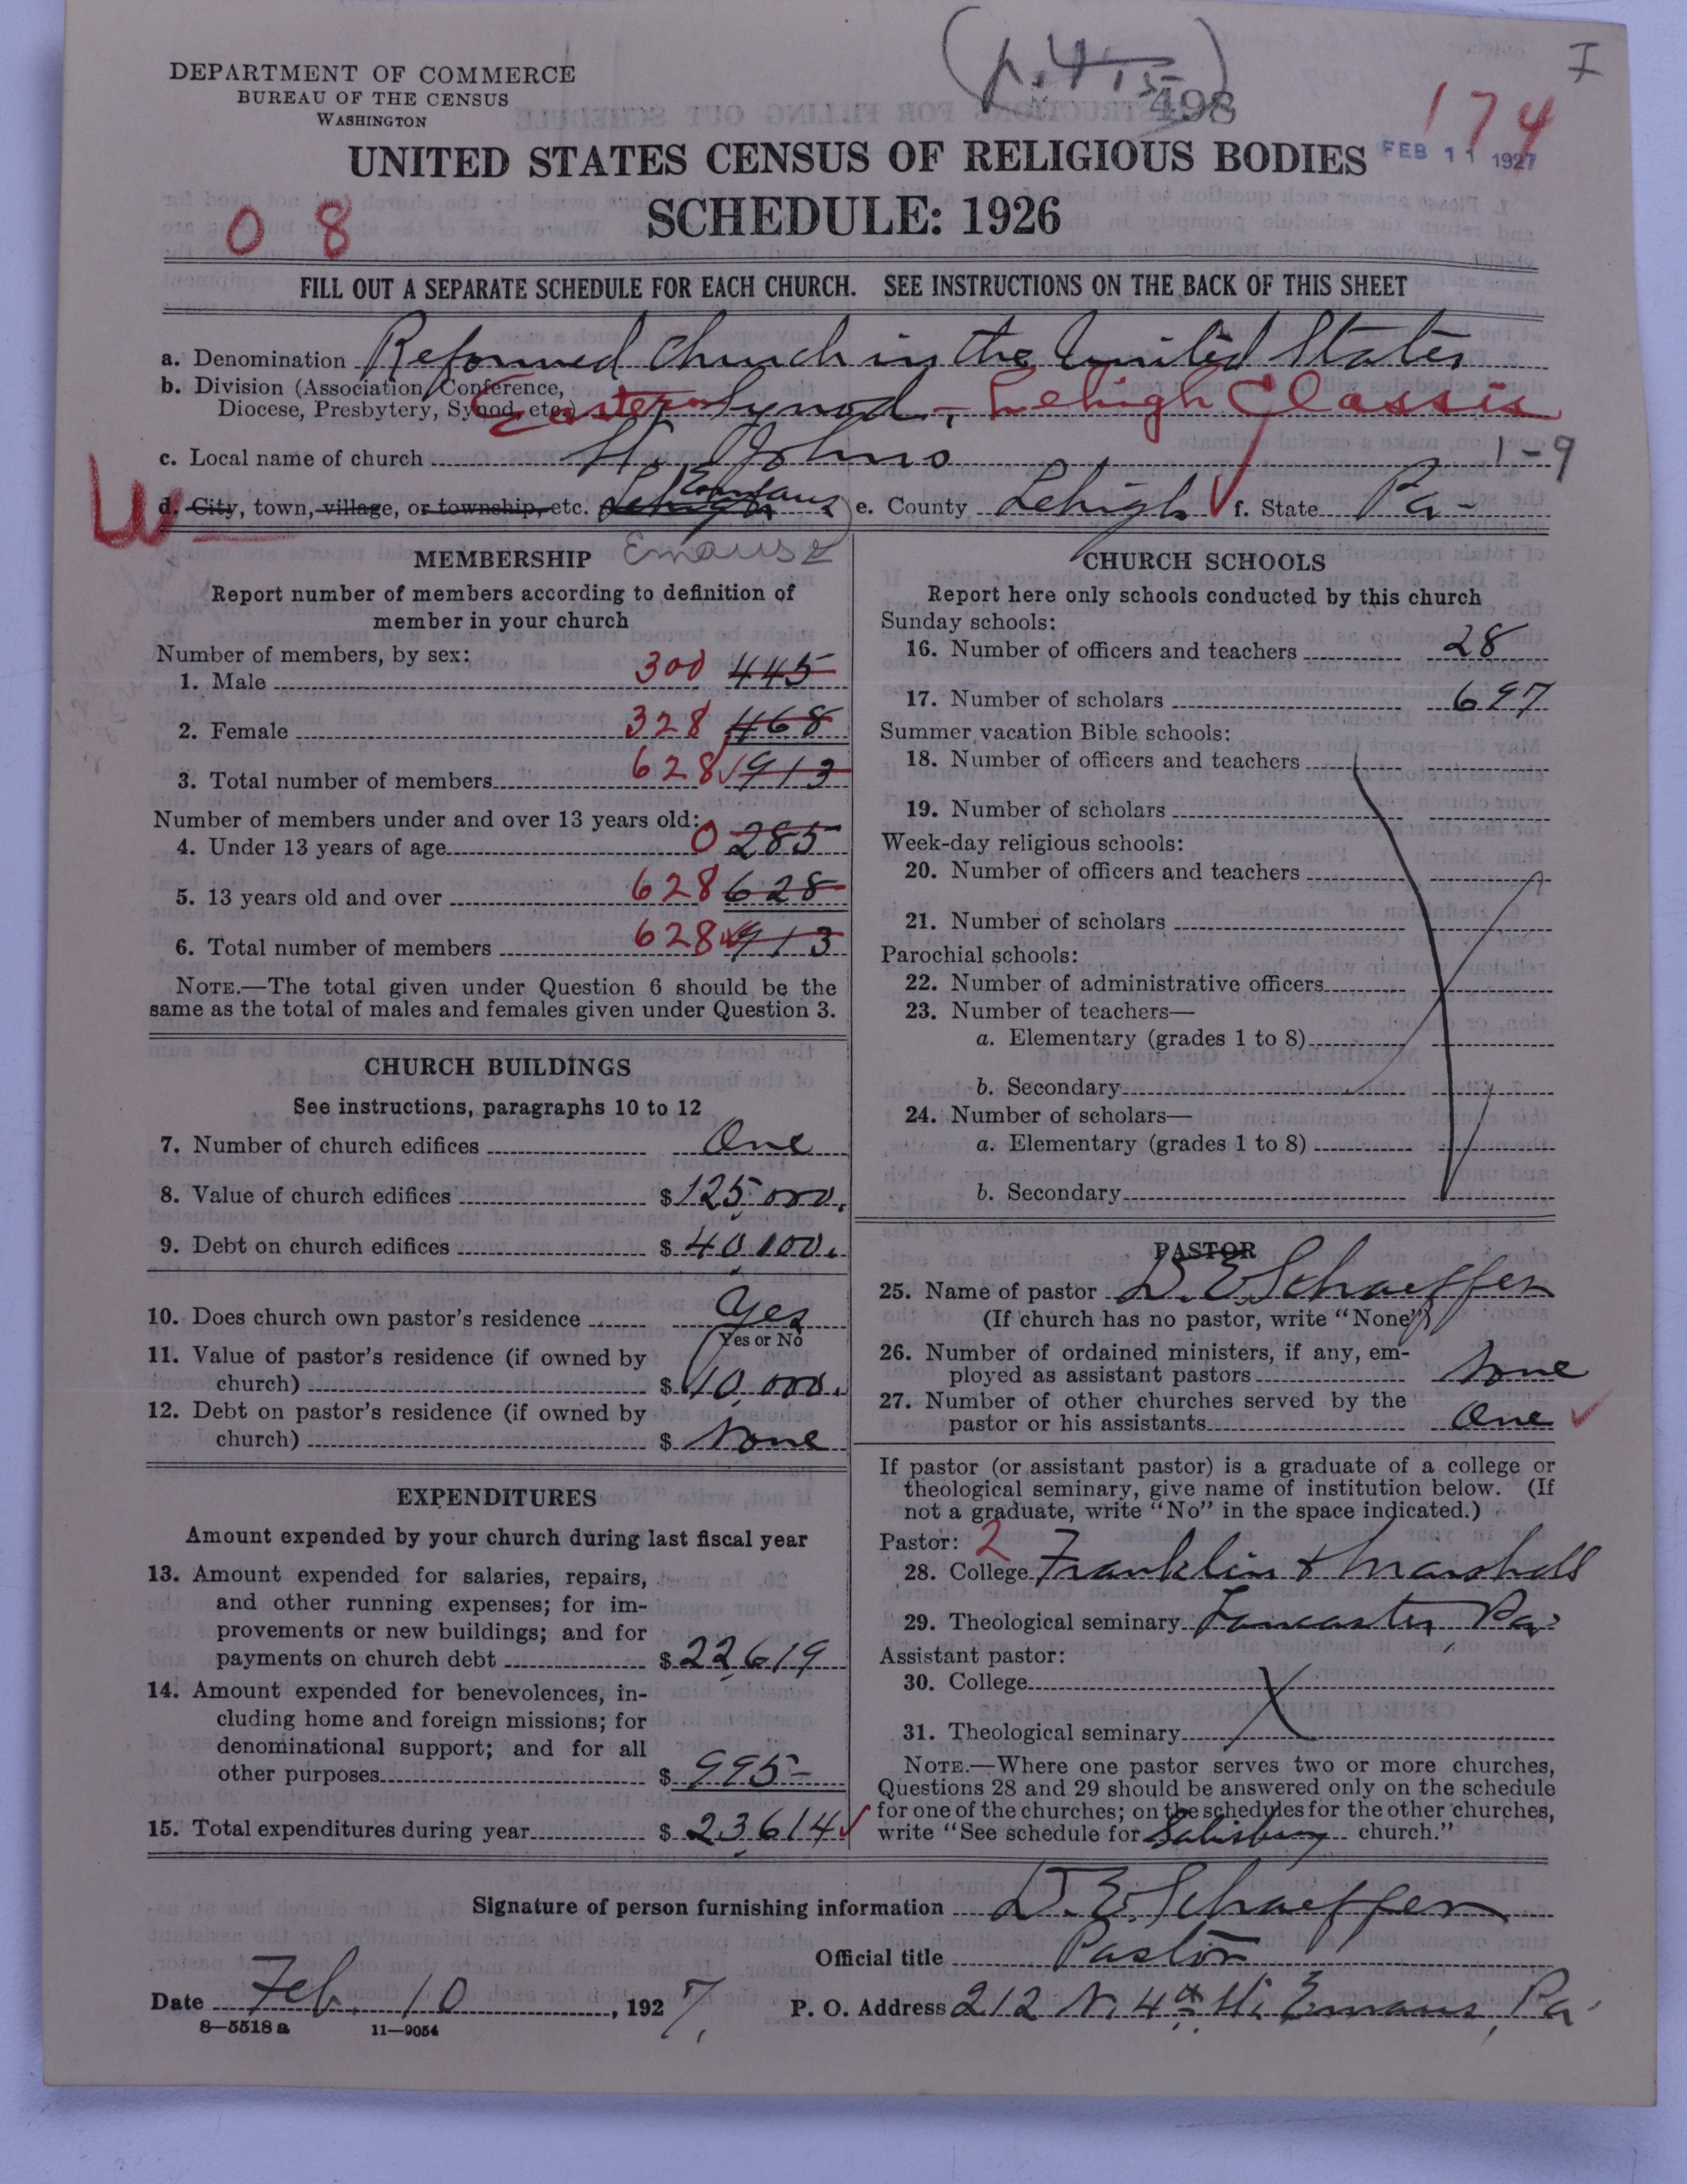 DEPARTMENT OF COMMERCE
BUREAU OF THE CENSUS
WASHINGTON
498
I
174
FEB 11 1927
UNITED STATES CENSUS OF RELIGIOUS BODIES
SCHEDULE: 1926
0 8
FILL OUT A SEPARATE SCHEDULE FOR EACH CHURCH. SEE INSTRUCTIONS ON THE BACK OF THIS SHEET
a. Denomination Reformed Church in the United States
b. Division (Association, Conference,
Diocese, Presbytery, Synod, etc.) Eastern Synod, - Lehigh Classis
c. Local name of church St. Johns 1-9
W
d. City, town, village, or township, etc. Lehigh Emaus e. County Lehigh f. State Pa-
MEMBERSHIP Emaus
Report number of members according to definition of
member in your church
Number of members, by sex:
1. Male 300 445
2. Female 328 468
3. Total number of members 628 913
Number of members under and over 13 years old:
4. Under 13 years of age 0 285
5. 13 years old and over 628 628
6. Total number of members 628 913
NOTE.—The total given under Question 6 should be the
same as the total of males and females given under Question 3.
CHURCH BUILDINGS
See instructions, paragraphs 10 to 12
7. Number of church edifices One
8. Value of church edifices $125,000.
9. Debt on church edifices $40,100.
10. Does church own pastor's residence Yes
Yes or No
11. Value of pastor's residence (if owned by
church) $10,000.
12. Debt on pastor's residence (if owned by
church) $ None
EXPENDITURES
Amount expended by your church during last fiscal year
13. Amount expended for salaries, repairs,
and other running expenses; for im-
provements or new buildings; and for
payments on church debt $22,619
14. Amount expended for benevolences, in-
cluding home and foreign missions; for
denominational support; and for all
other purposes $995-
15. Total expenditures during year $23,614
CHURCH SCHOOLS
Report here only schools conducted by this church
Sunday schools:
16. Number of officers and teachers 28
17. Number of scholars 697
Summer vacation Bible schools:
18. Number of officers and teachers
19. Number of scholars
Week-day religious schools:
20. Number of officers and teachers
21. Number of scholars
Parochial schools:
22. Number of administrative officers
23. Number of teachers—
a. Elementary (grades 1 to 8)
b. Secondary
24. Number of scholars—
a. Elementary (grades 1 to 8)
b. Secondary
PASTOR
25. Name of pastor D. E. Schaeffer
(If church has no pastor, write "None")
26. Number of ordained ministers, if any, em-
ployed as assistant pastors None
27. Number of other churches served by the
pastor or his assistants One
If pastor (or assistant pastor) is a graduate of a college or
theological seminary, give name of institution below. (If
not a graduate, write "No" in the space indicated.)
Pastor: 2
28. College Franklin & Marshall
29. Theological seminary Lancaster, Pa.
Assistant pastor:
30. College
31. Theological seminary
NOTE.—Where one pastor serves two or more churches,
Questions 28 and 29 should be answered only on the schedule
for one of the churches; on the schedules for the other churches,
write "See schedule for Salisbury church."
Signature of person furnishing information D. E. Schaeffer
Official title Pastor
Date Feb. 10, 1927. P. O. Address 212 N. 4th St. Emaus, Pa.
8—5518 a 11—9054